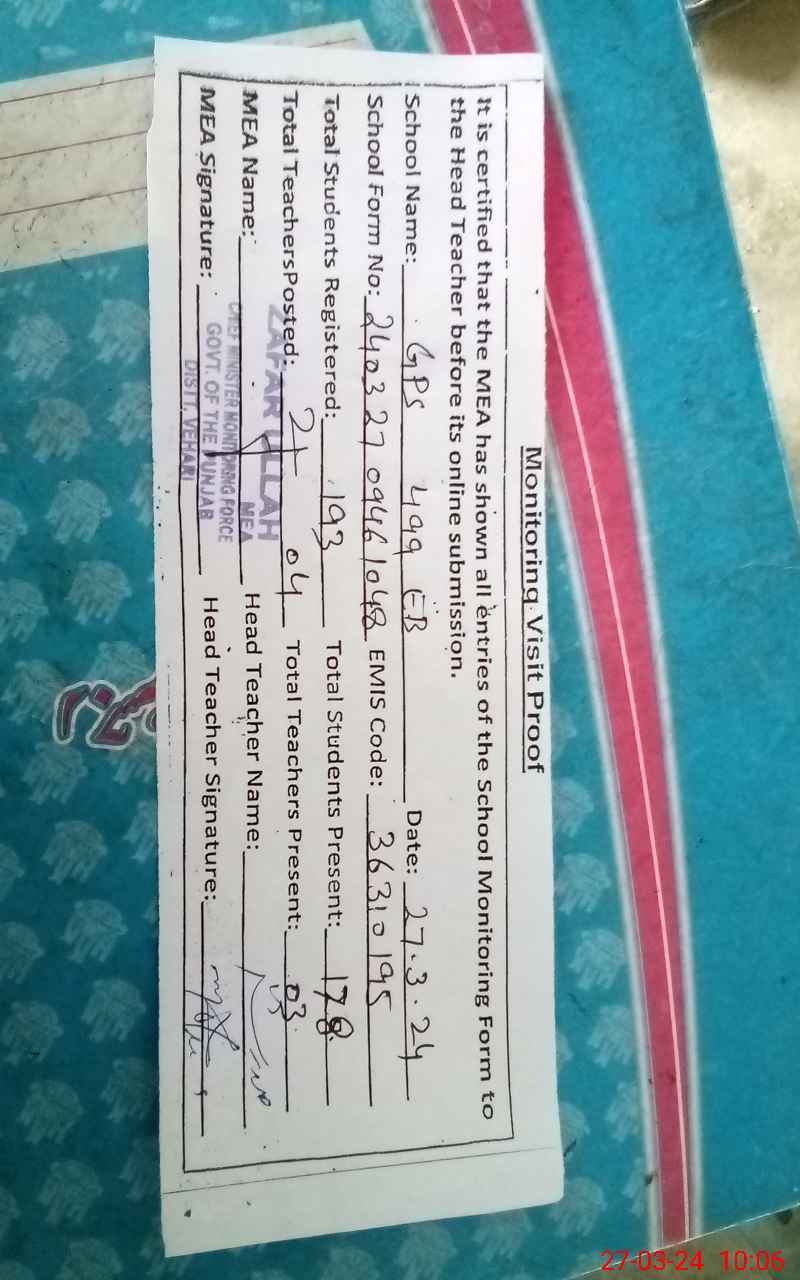 Monitoring Visit Proof
It is certified that the MEA has shown all entries of the School Monitoring Form to
the Head Teacher before its online submission.
School Name: GPS 499 EB Date: 27.3.24
School Form No: 24032709461048 EMIS Code: 36310195
Total Students Registered: 193 Total Students Present: 178
Total TeachersPosted: 04 Total Teachers Present: 03
MEA Name: Head Teacher Name:
MEA Signature: Head Teacher Signature:
ZAFAR ULLAH
MEA
CHIEF MINISTER MONITORING FORCE
GOVT. OF THE PUNJAB
DISTT, VEHARI
27-03-24 10:06